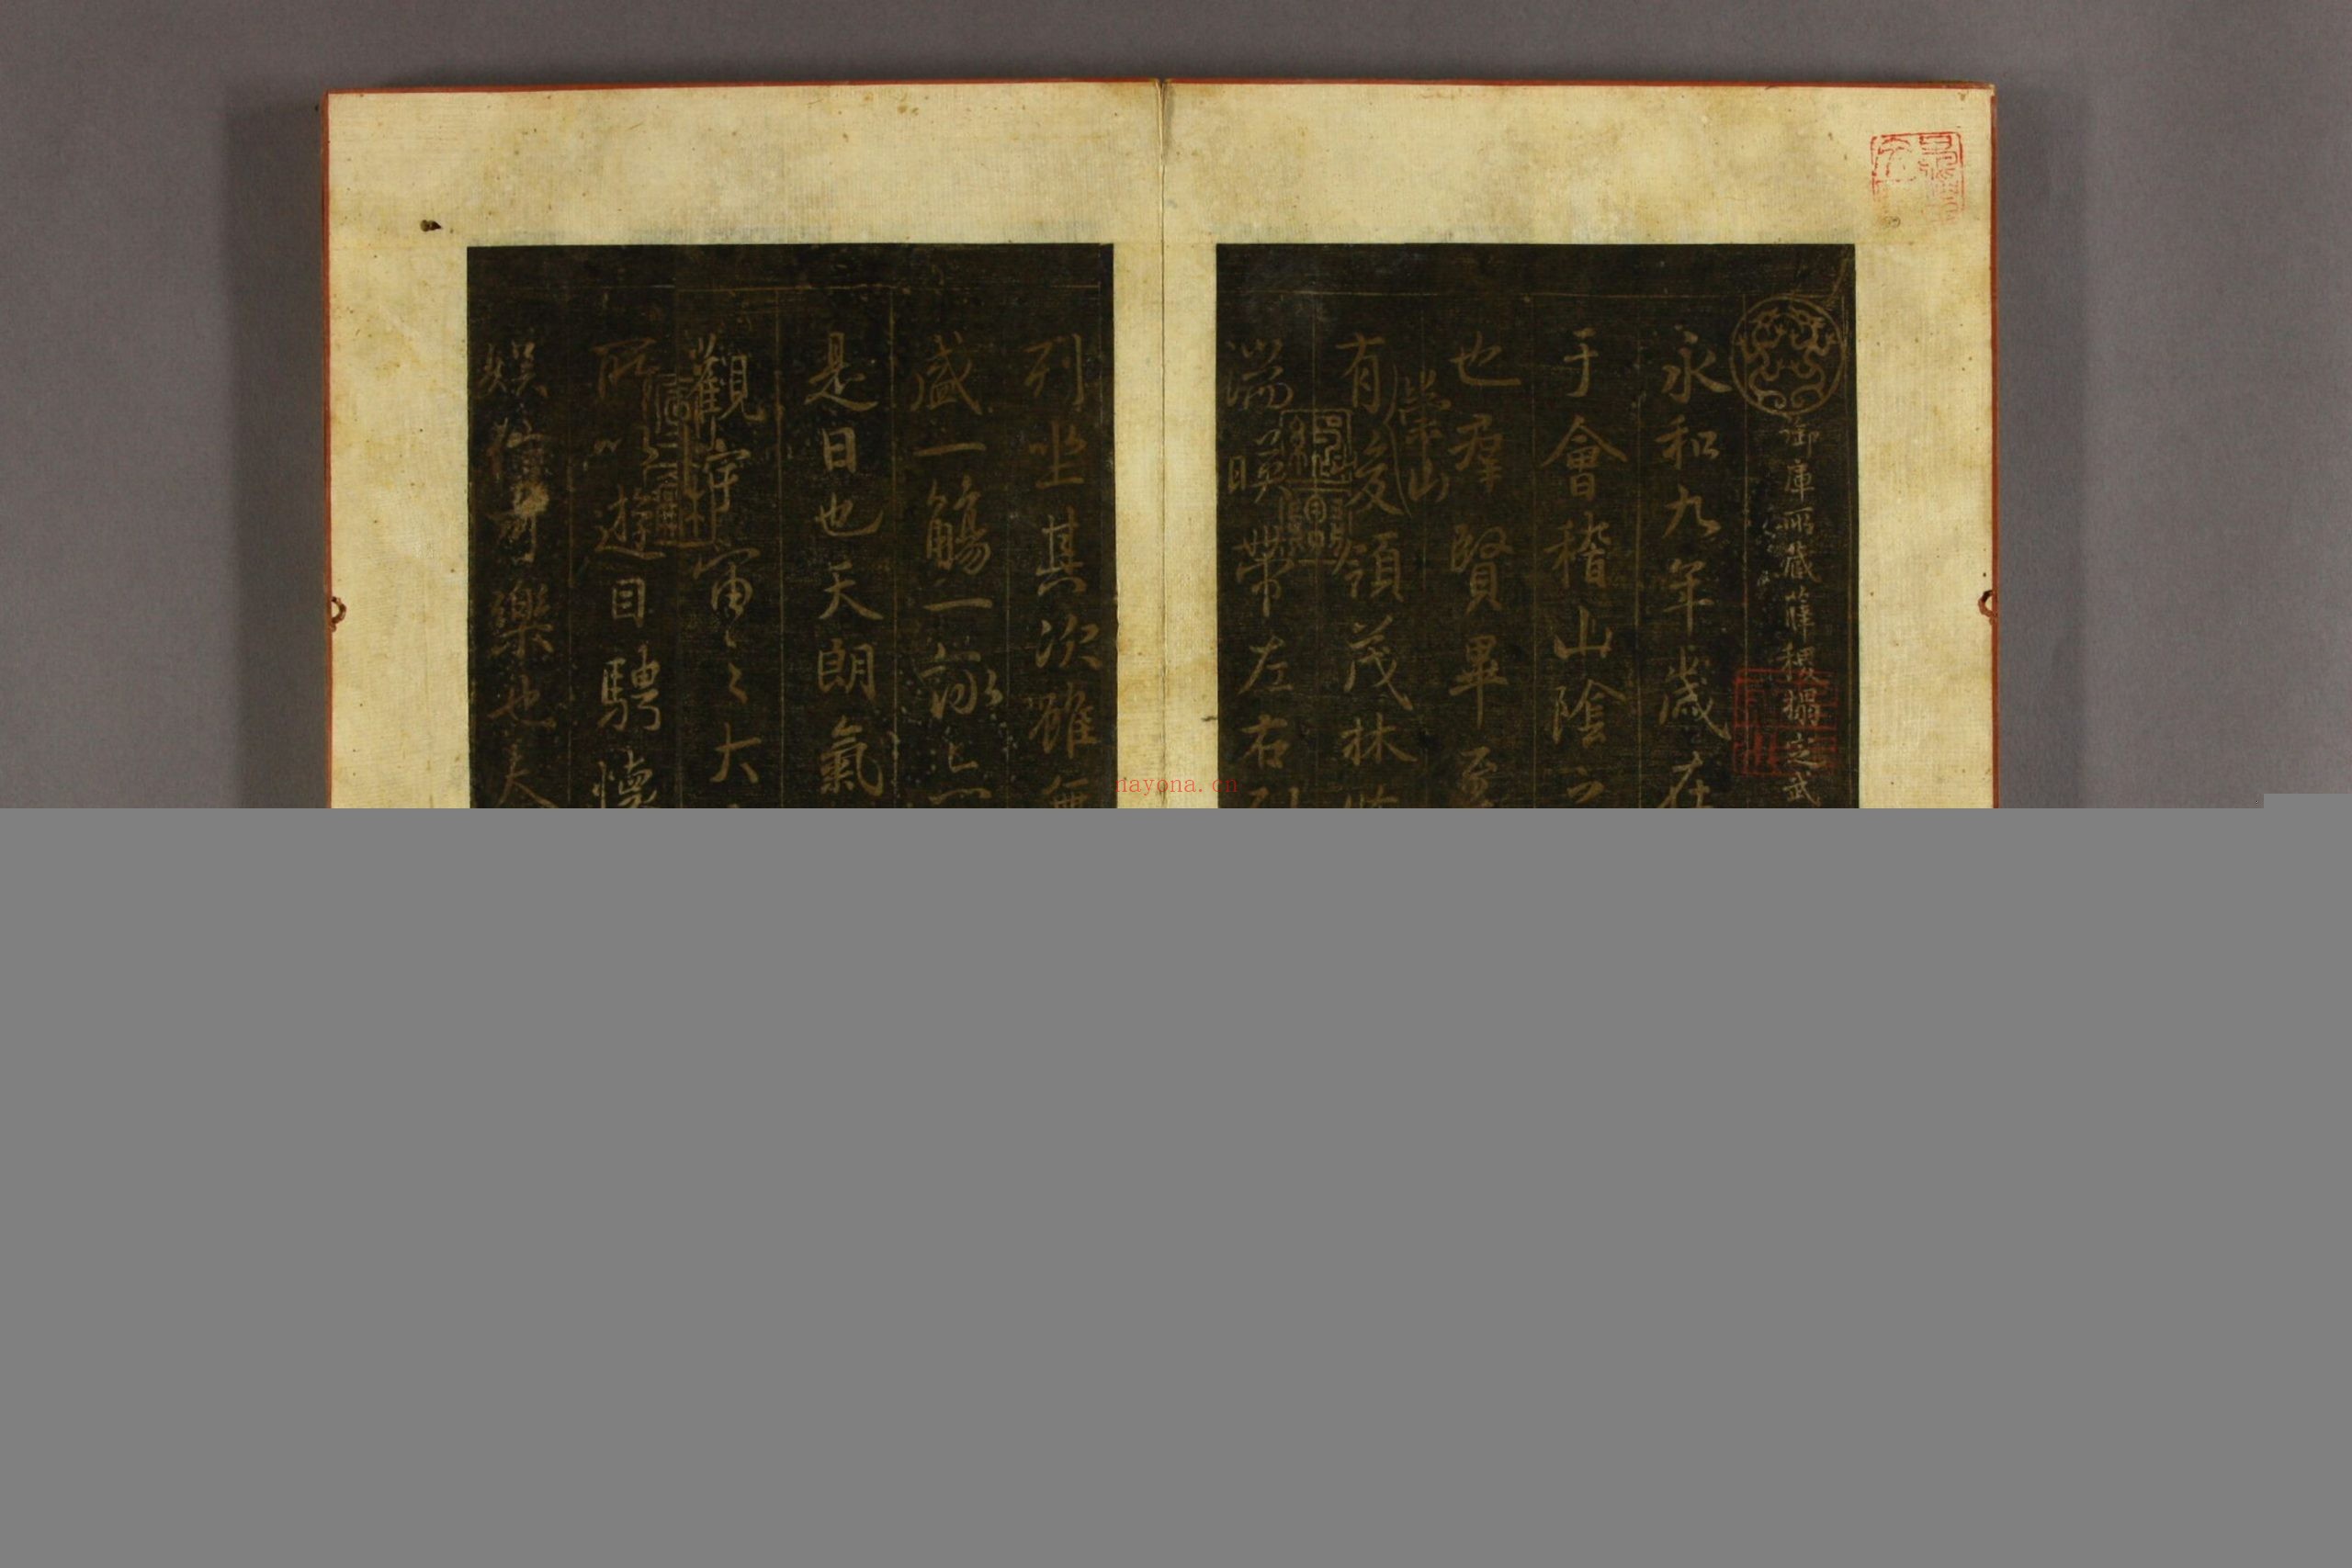 御庫所藏薛稷搨定武
永和九年歲在
于會稽山陰之
也群賢畢至
崇山
有峻領茂林脩
湍暎帶左右引
列坐其次雖無
盛一觴一詠亦
是日也天朗氣
觀宇宙之大
所以遊目騁懷
娛信可樂也夫
nayona.cn